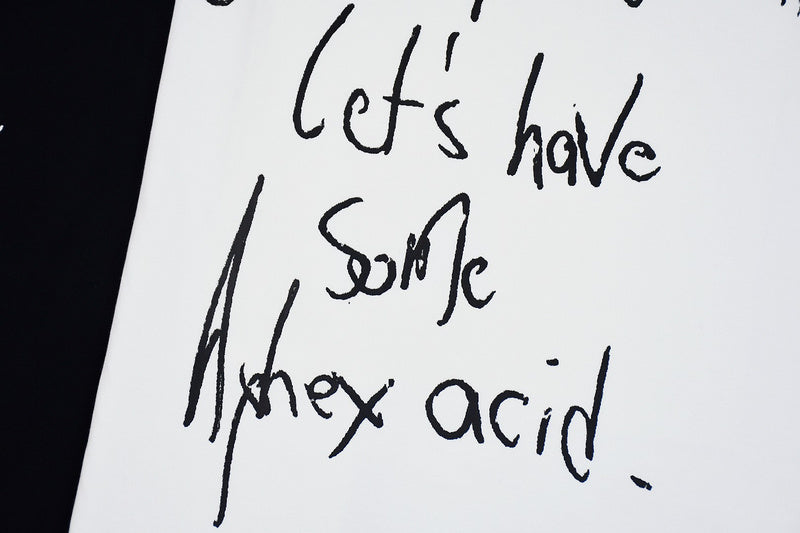 Let's have
some
Aphex acid.